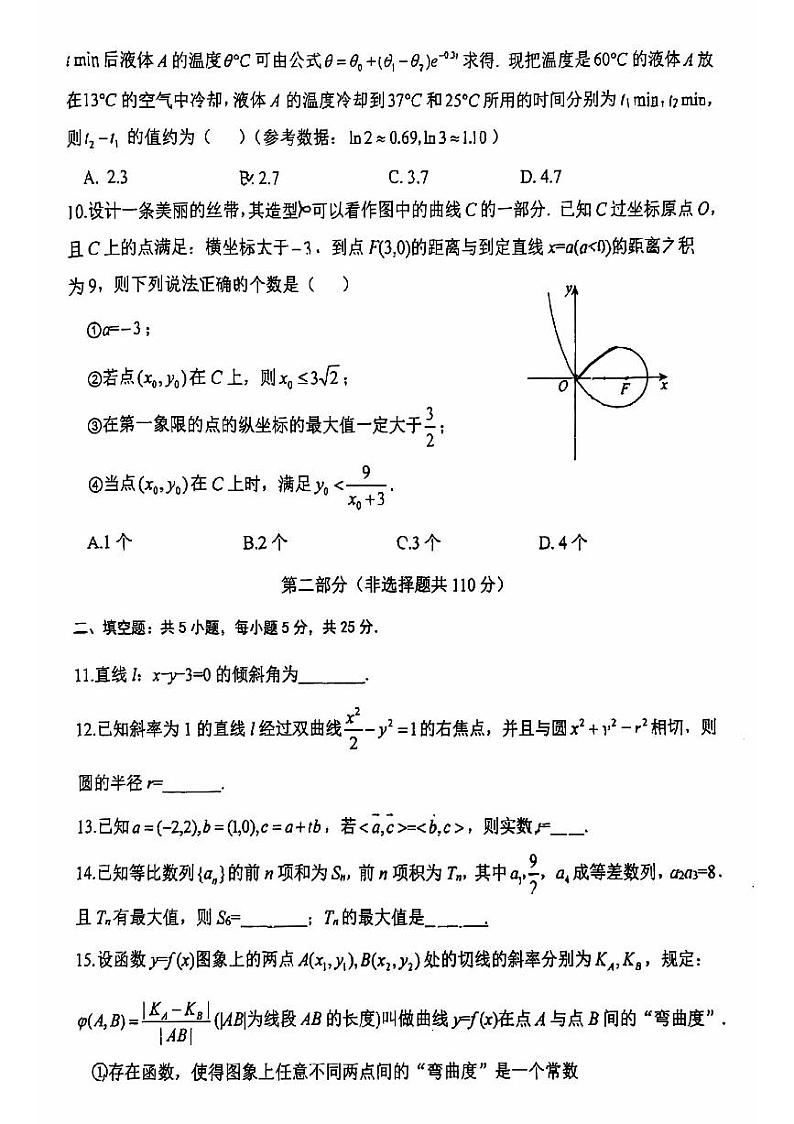 t min后液体A的温度θ°C可由公式θ=θ₀+(θ₁−θ₇)e^{−0.3t}求得. 现把温度是60°C的液体A放
在13°C的空气中冷却,液体A的温度冷却到37°C和25°C所用的时间分别为t₁ min, t₂ min,
则t₂−t₁ 的值约为( )(参考数据: ln2≈0.69,ln3≈1.10)
A. 2.3 B. 2.7 C. 3.7 D. 4.7
10.设计一条美丽的丝带,其造型可以看作图中的曲线C的一部分. 已知C过坐标原点O,
且C上的点满足: 横坐标大于−3, 到点F(3,0)的距离与到定直线x=a(a<0)的距离之积
为9, 则下列说法正确的个数是( )
①a=−3;
②若点(x₀,y₀)在C上, 则x₀≤3√2;
③在第一象限的点的纵坐标的最大值一定大于3/2;
④当点(x₀,y₀)在C上时, 满足y₀<9/(x₀+3).
y
O F x
A.1个 B.2个 C.3个 D. 4个
第二部分(非选择题共110分)
二、填空题: 共5小题, 每小题5分, 共25分.
11.直线l: x−y−3=0的倾斜角为______.
12.已知斜率为1的直线l经过双曲线x²/2−y²=1的右焦点, 并且与圆x²+y²−r²相切, 则
圆的半径r=______.
13.已知a=(−2,2),b=(1,0),c=a+tb, 若<a⃗,c⃗>=<b,c>, 则实数t=____.
14.已知等比数列{aₙ}的前n项和为Sₙ, 前n项积为Tₙ, 其中a₁,9/2, a₄成等差数列, a₂a₃=8.
且Tₙ有最大值, 则S₆=______; Tₙ的最大值是______.
15.设函数y=f(x)图象上的两点A(x₁,y₁),B(x₂,y₂)处的切线的斜率分别为K_A,K_B, 规定:
φ(A,B)=|K_A−K_B|/|AB|(|AB|为线段AB的长度)叫做曲线y=f(x)在点A与点B间的“弯曲度”.
①存在函数, 使得图象上任意不同两点间的“弯曲度”是一个常数